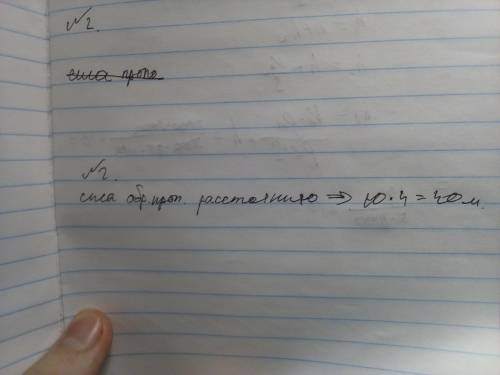 №2.
сила пропо
№2.
сила обр. проп. расстоянию ⇒ 10·4=40м.